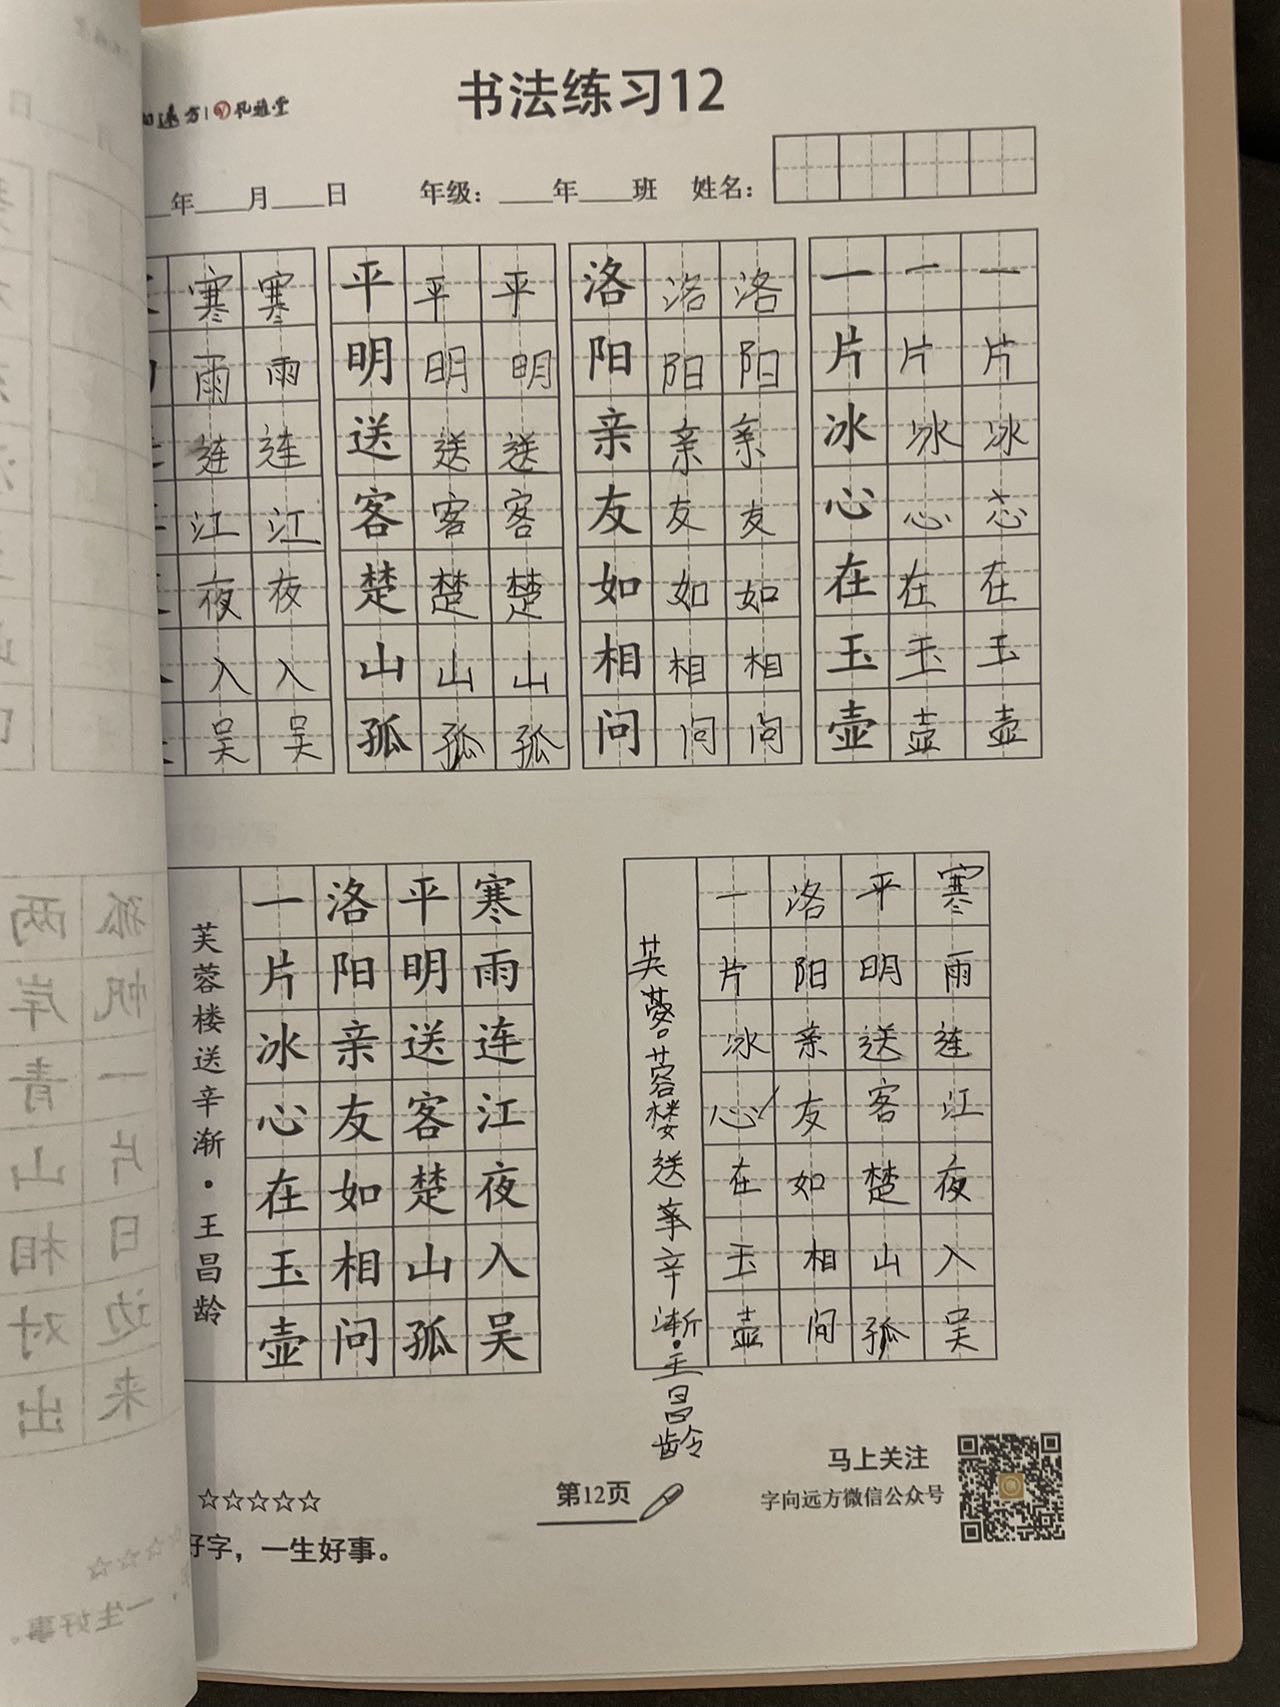 远方 孔雅堂
书法练习12
年____月____日 年级：____年____班 姓名：
寒寒
雨雨
连连
江江
夜夜
入入
吴吴
平平平
明明明
送送送
客客客
楚楚楚
山山山
孤孤孤
洛洛洛
阳阳阳
亲亲亲
友友友
如如如
相相相
问问问
一一一
片片片
冰冰冰
心心心
在在在
玉玉玉
壶壶壶
寒雨连江夜入吴
平明送客楚山孤
洛阳亲友如相问
一片冰心在玉壶
芙蓉楼送辛渐·王昌龄
寒雨连江夜入吴
平明送客楚山孤
洛阳亲友如相问
一片冰心在玉壶
芙蓉楼送辛渐·王昌龄
☆☆☆☆☆
好字，一生好事。
第12页
马上关注
字向远方微信公众号
孤帆一片日边来
两岸青山相对出
一生好事。